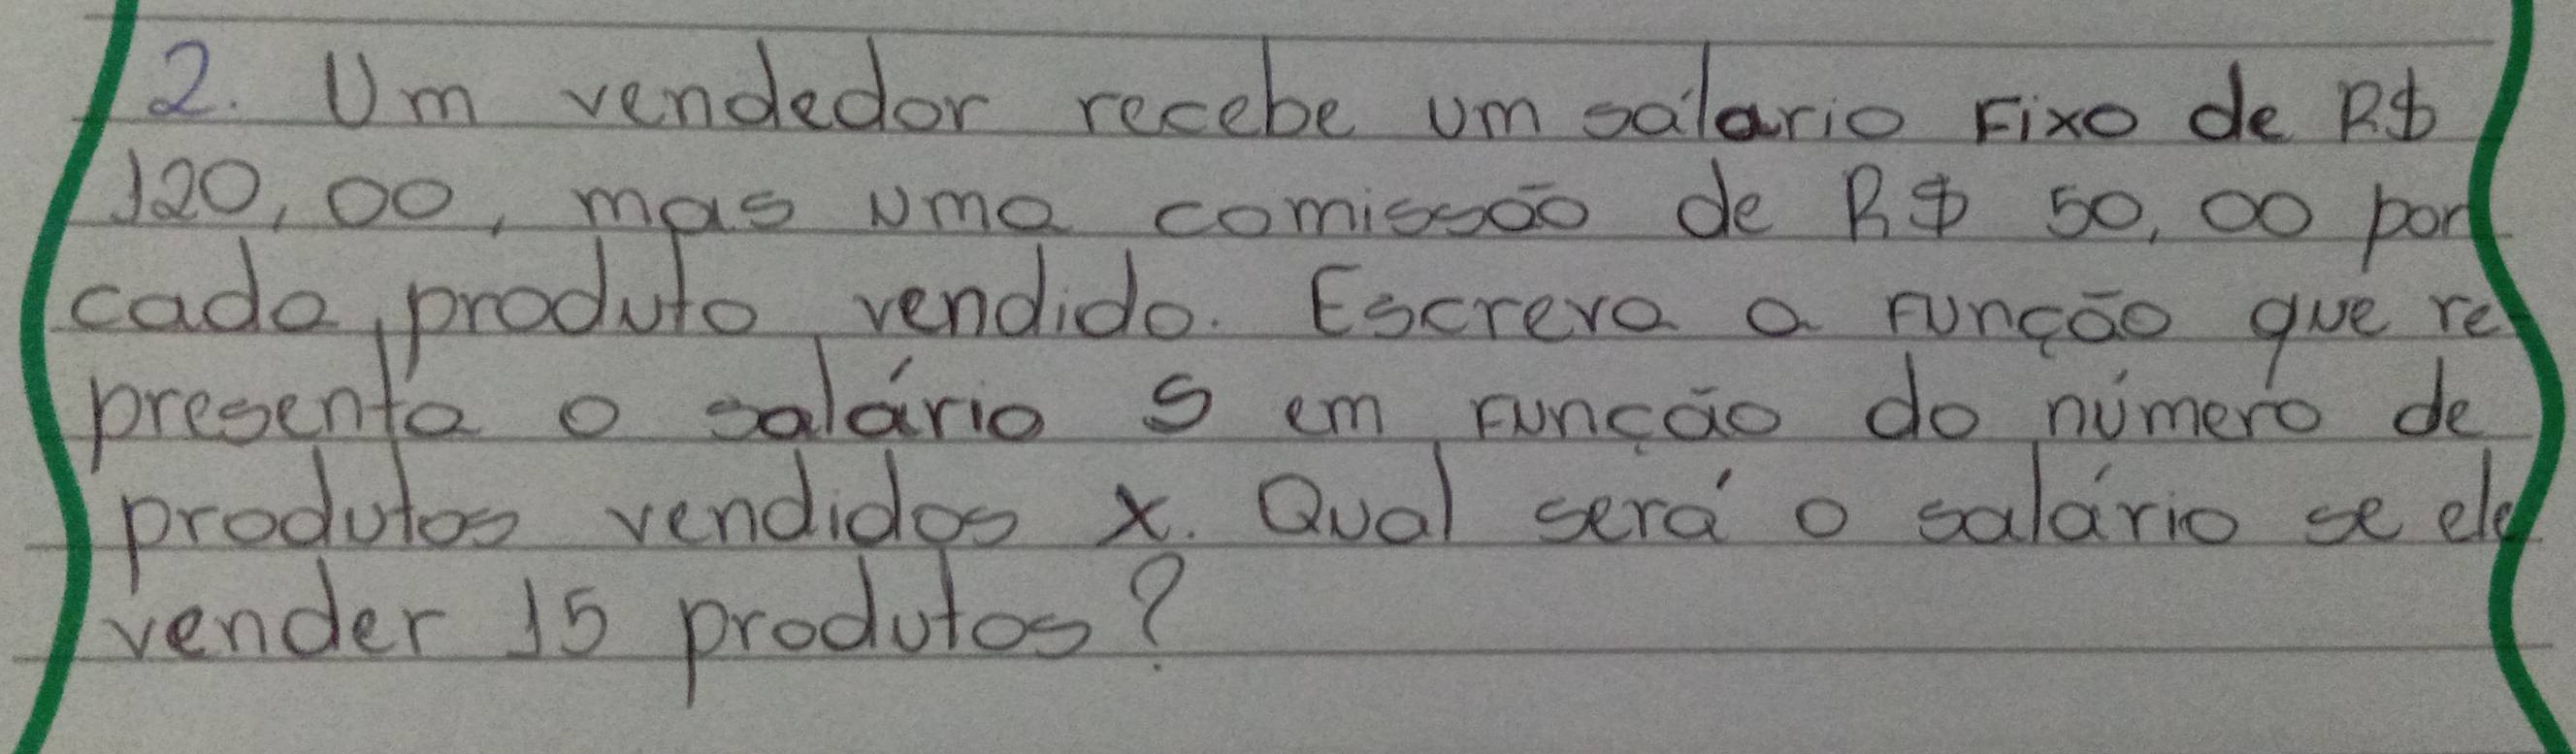 2. Um vendedor recebe um sálario Fixo de R$
120,00, mas uma comissão de R$ 50,00 por
cada produto vendido. Escreva a Função que re
presenta o salário S em Função do número de
produtos vendidos x. Qual será o salário se ele
vender 15 produtos?